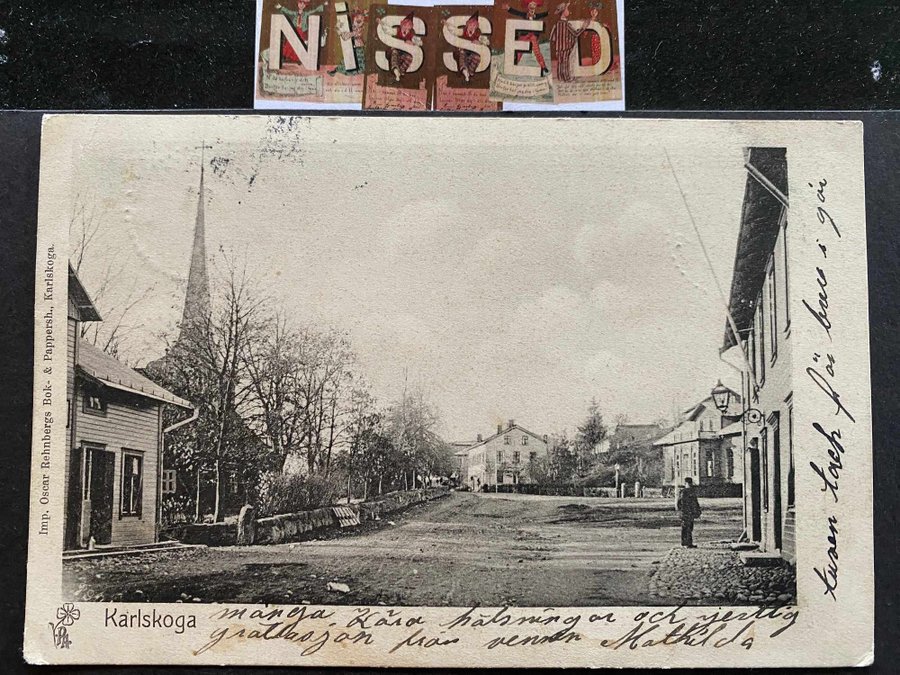 NiSSED
Imp. Oscar Rehnbergs Bok- & Pappersh., Karlskoga.
tusen tack för brev i går
Karlskoga
många kära hälsningar och jertlig
gratulasjon från vennen Mathilda